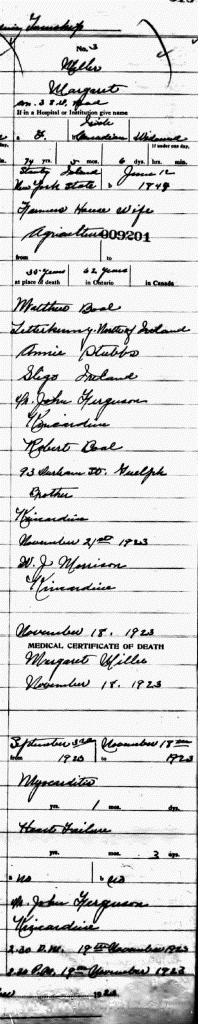 Township
No. 3
Miller
Margaret
If in a Hospital or Institution give name
Irish
F. Canadian Widowed
If under one day,
74 yrs. 5 mos. 6 days hrs. min.
Island June 12
New York State b 1849
Farmers House Wife
Agriculture 009201
from to
30 years 62 years
at place of death in Ontario in Canada
Matthew Boal
Letterkenny North of Ireland
Annie Stubbs
Sligo Ireland
John Ferguson
Kincardine
Robert Boal
93 Durham St. Guelph
Brother
Kincardine
November 21st 1923
W. J. Morrison
Kincardine
November 18. 1923
MEDICAL CERTIFICATE OF DEATH
Margaret Miller
November 18. 1923
September November 18
from 1923 to 1923
Myocarditis
yrs. 1 mos. dys.
Heart Failure
yrs. mos. 3 dys.
a no b no
John Ferguson
Kincardine
2.30 P.M. 19th November 1923
2.30 P.M. 19th November 1923
192